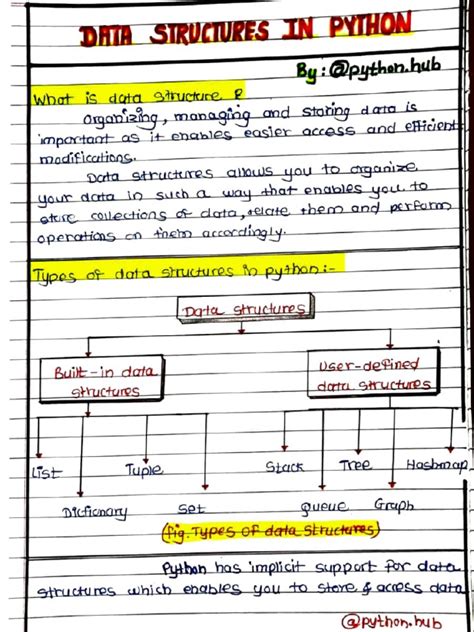 DATA STRUCTURES IN PYTHON
By: @python.hub
What is data structure ?
Organizing, managing and storing data is
important as it enables easier access and efficient
modifications.
Data structures allows you to organize
your data in such a way that enables you to
store collections of data, relate them and perform
operations on them accordingly.
Types of data structures in python:-
Data structures
Built-in data
structures
User-defined
data structures
List
Tuple
Stack
Tree
Hashmap
Dictionary
Set
Queue
Graph
(fig. Types of data structures)
Python has implicit support for data
structures which enables you to store & access data
@python.hub